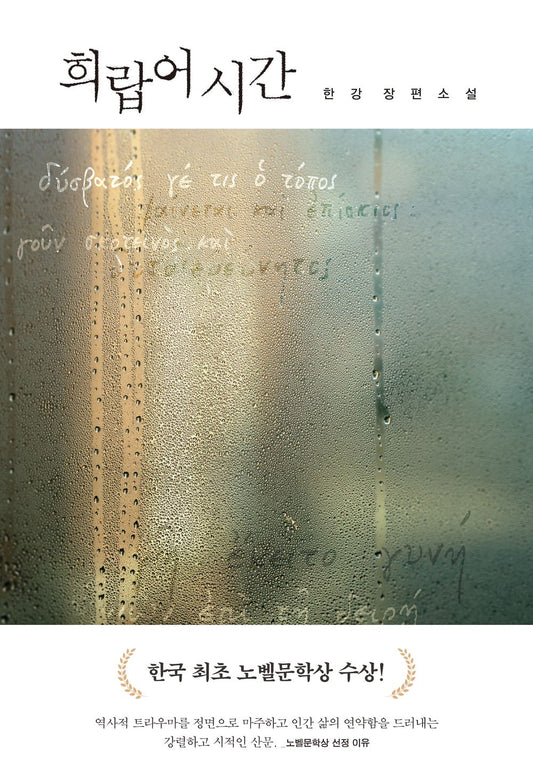 희랍어 시간
한강 장편소설
δύσβατός γέ τις ὁ τόπος
φαίνεται καὶ ἐπίσκιος
γοῦν σκοτεινὸς καὶ
ἔκειτο γυνή
ἐπὶ τῇ δειρῇ
한국 최초 노벨문학상 수상!
역사적 트라우마를 정면으로 마주하고 인간 삶의 연약함을 드러내는
강렬하고 시적인 산문. _노벨문학상 선정 이유